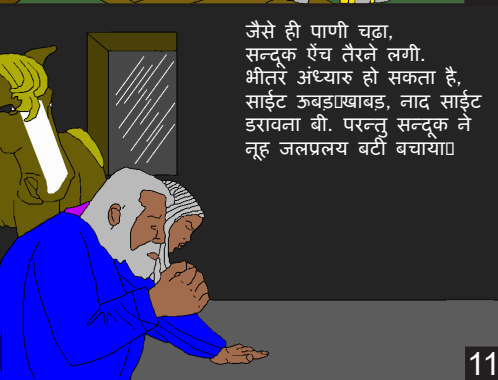 जैसे ही पाणी चढ़ा,
सन्दूक ऐंच तैरने लगी.
भीतर अंध्यारु हो सकता है,
साईट ऊबड़▯खाबड़, नाद साईट
डरावना बी. परन्तु सन्दूक ने
नूह जलप्रलय बटी बचाया▯
11